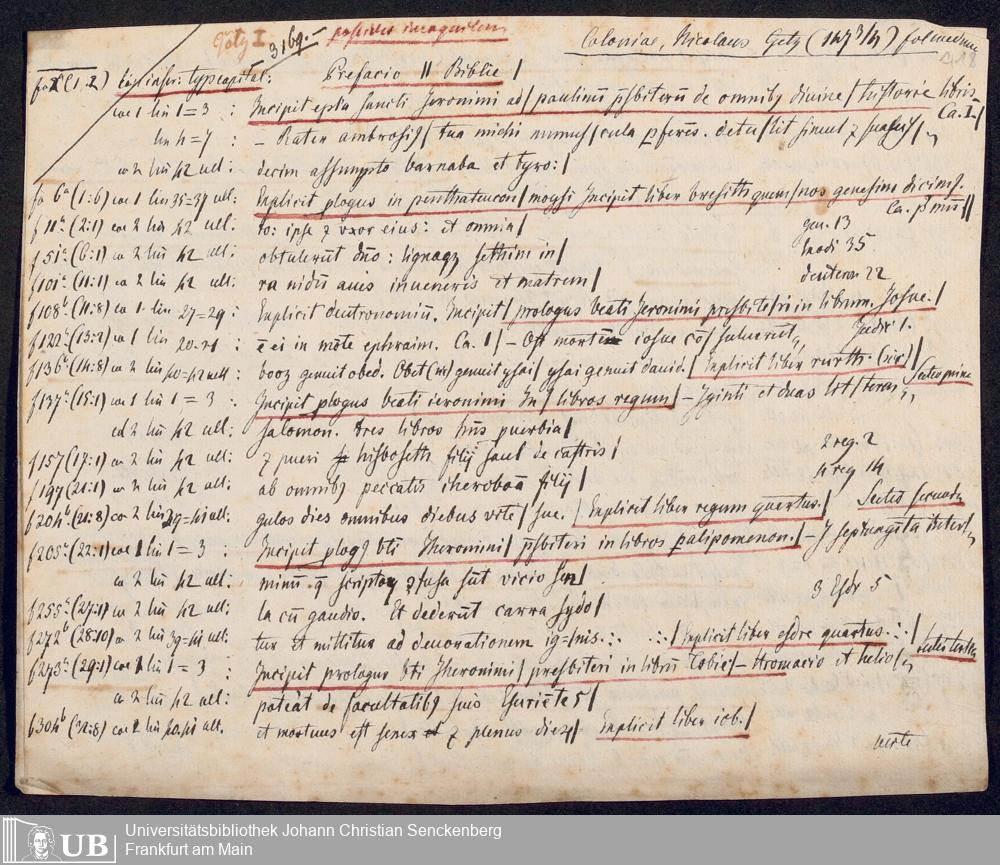 Götz I. 3169.- Coloniae, Nicolaus Götz (147¾) fol. med. imp.
418
Prefacio || Biblie |
col 1 lin 1=3 : Incipit epła sancti Jeronimi ad | paulinū p̄sbiterū de omnibꝫ diuine | historie libris Ca. I |
lin 4=7 : – Rater ambrosiꝰ | tua michi | p̄feres. detu | lit simul ⁊ suauissi |
co 2 lin 42 ult: decim assumpto barnaba et tyro: |
fo 6ᵃ (1:6) col 1 lin 35=37 ult: Explicit plogus in penthateucon | moysi Incipit liber bresith quem | nos genesim dicimꝰ. Ca. pʳmū ||
f 11ᵃ (2:1) co 2 lin 42 ult. to: ipse ⁊ vxor eius: et omnia | gen. 13
f 51ᵃ (6:1) co 2 lin 42 ult: obtulerūt dno: lignaqꝫ sethim in | Exodi 35
f 101ᵃ (11:1) co 2 lin 42 ult: ra nidū auis inueneris et matrem | deuteron 22
f 108ᵇ (11:8) co 1 lin 27=29 : Explicit deutronomiū. Incipit | prologus beati Jeronimi presbite | ri in librum Josue. |
f 120ᵃ (13:2) co 1 lin 20-21 : ē ei in mōte ephraim. Ca. I | – Ost mortē iosue cō | suluerūt, Judic 1.
f 136ᵇ (14:8) co 2 lin 40=42 ult: booz genuit obed. Obet (sic) genuit ysai | ysai genuit dauid. | Explicit liber rurth. (sic) |
f 137ᵃ (15:1) col 1 lin 1=3 : Incipit plogus beati ieronimi In | libros regum | – Iginti et duas | teras,
col 2 lin 42 ult: salomon. Tres libros | puerbia |
f 157 (17:1) co 2 lin 42 ult: ⁊ pueri hisboseth filij saul de castris | 2 reg. 2
f 197 (21:1) co 2 lin 42 ult: ab omnibꝫ peccatis iheroboā filij | 4 reg 14
f 204ᵇ (21:8) co 2 lin 39-41 ult: gulos dies omnibus diebus vite | sue. | Explicit liber regum quartus. | Sectio secunda
f 205ᵃ (22:1) col 1 lin 1=3 : Incipit plogꝰ bti Iheronimi | p̄sbiteri in libros palipomenon. | – I septuaginta interp |
co 2 lin 42 ult: minū. q̄ scriptoꝝ ꝯfusa sūt vicio sen |
f 255ᵃ (27:1) co 2 lin 42 ult: la cū gaudio. Et dederūt carra sydo | 3 Esdr 5
f 272ᵇ (28:10) co 2 lin 39=41 ult: tur et mittitur ad deuorationem ig=|nis .:. .:. | Explicit liber esdre quartus .:. |
f 273ᵃ (29:1) col 1 lin 1=3 : Incipit prologus bti Iheronimi | presbiteri in librū Tobie | – Hromacio et helio |
co 2 lin 42 ult: pateāt de facultatibꝫ suis |
f 304ᵇ (32:8) col 2 lin 40.41 ult. et mortuus est senex ⁊ plenus dieꝝ | Explicit liber iob. |
verte
UB Universitätsbibliothek Johann Christian Senckenberg
Frankfurt am Main